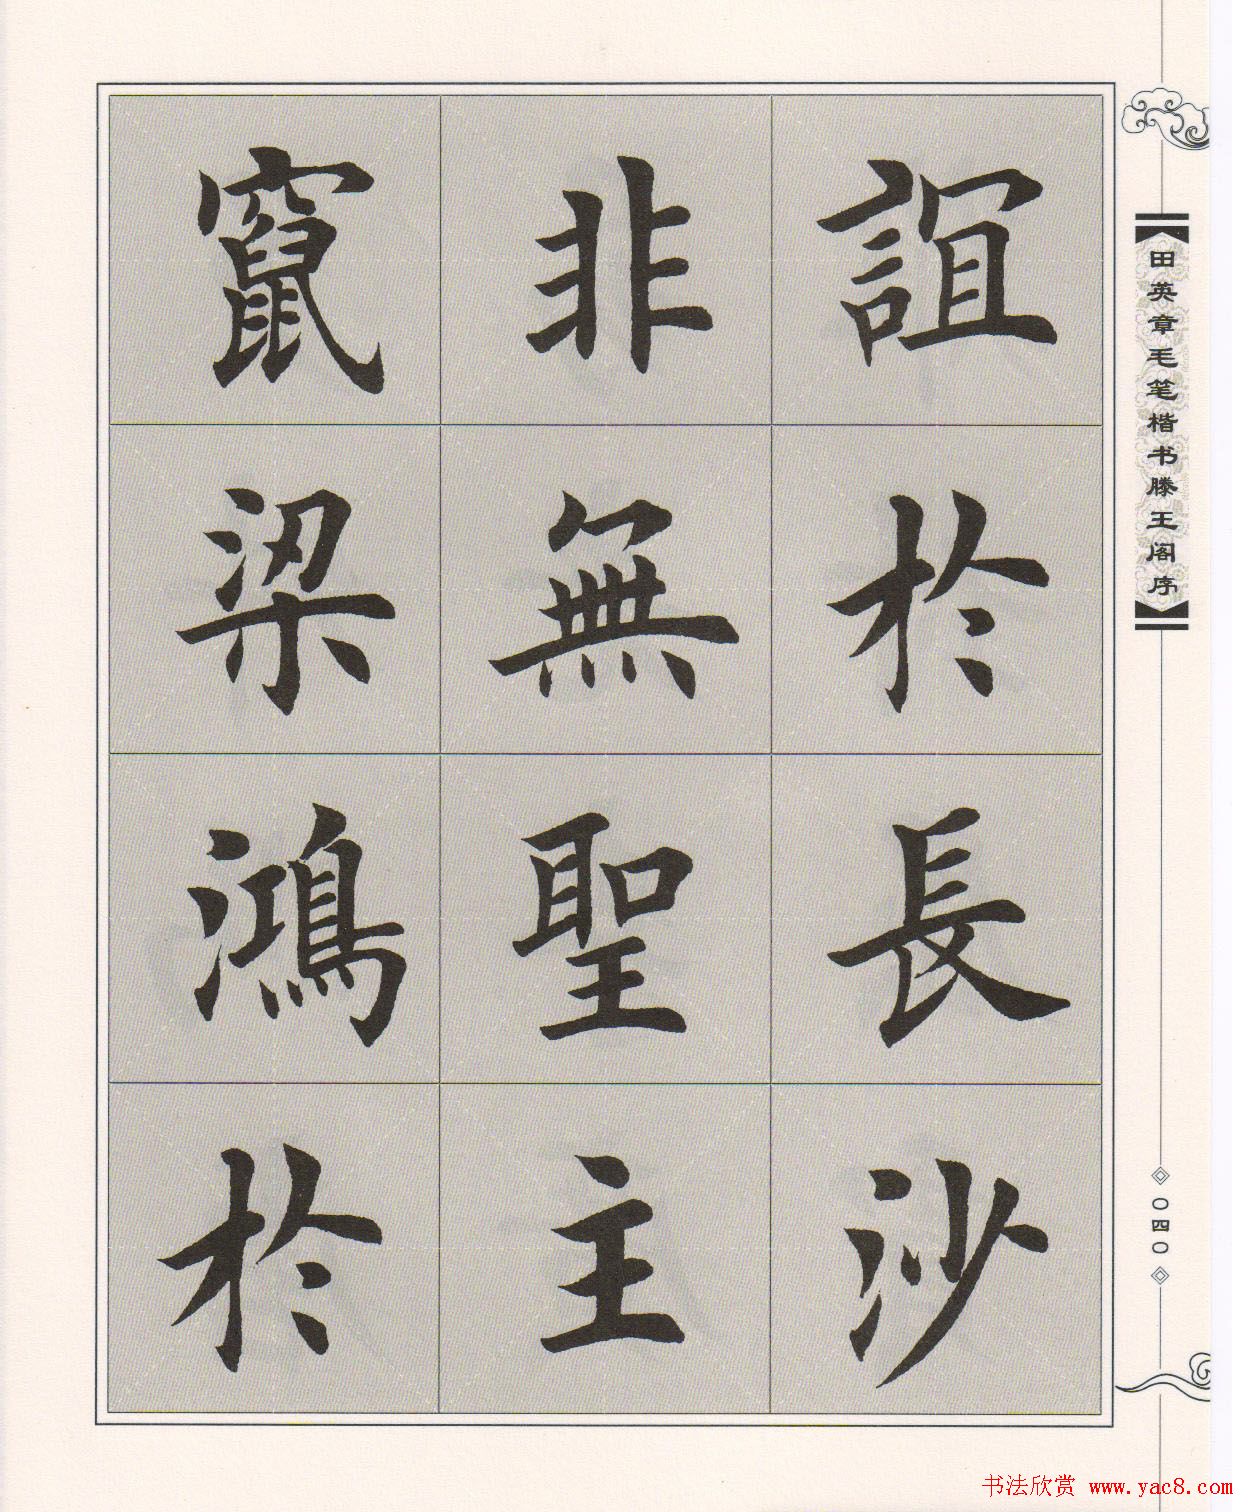 誼於長沙
非無聖主
竄梁鴻於
田英章毛笔楷书滕王阁序
〇四〇
书法欣赏 www.yac8.com